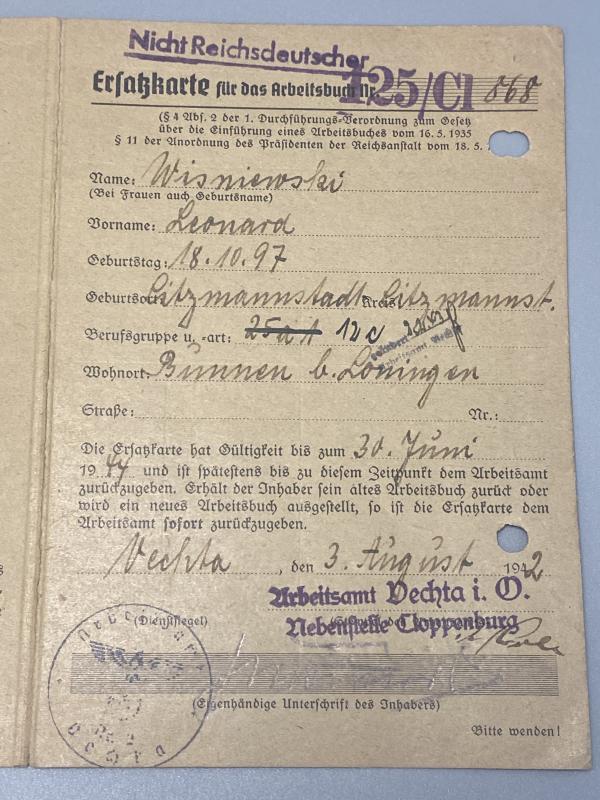 Nicht Reichsdeutscher
Ersatzkarte für das Arbeitsbuch Nr. 125/Cl 868
(§ 4 Abs. 2 der 1. Durchführungs-Verordnung zum Gesetz
über die Einführung eines Arbeitsbuches vom 16. 5. 1935
§ 11 der Anordnung des Präsidenten der Reichsanstalt vom 18. 5.
Name: Wisniewski
(Bei Frauen auch Geburtsname)
Vorname: Leonard
Geburtstag: 18. 10. 97
Geburtsort: Litzmannstadt Kreis: Litzmannst.
Berufsgruppe u. -art: 25a1 12c
Arbeitsamt
Wohnort: Bunnen b. Löningen
Straße: Nr.:
Die Ersatzkarte hat Gültigkeit bis zum 30. Juni
1944 und ist spätestens bis zu diesem Zeitpunkt dem Arbeitsamt
zurückzugeben. Erhält der Inhaber sein altes Arbeitsbuch zurück oder
wird ein neues Arbeitsbuch ausgestellt, so ist die Ersatzkarte dem
Arbeitsamt sofort zurückzugeben.
Vechta, den 3. August 1942
Arbeitsamt Vechta i. O.
(Dienstsiegel)
Nebenstelle Cloppenburg
Arbeitsamt
(Eigenhändige Unterschrift des Inhabers)
Bitte wenden!